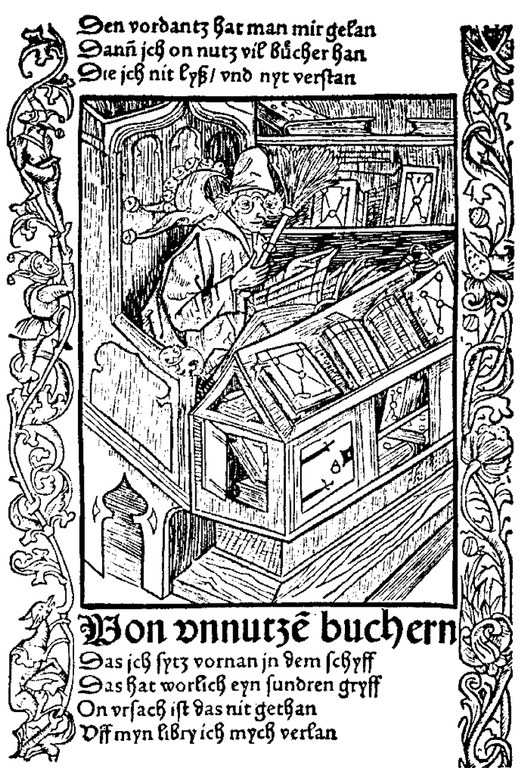 Den vordantz hat man mir gelan
Dann̄ jch on nutz vil buͤcher han
Die jch nit lyß / vnd nyt verstan
Von vnnutzē buchern
Das jch sytz vornan jn dem schyff
Das hat worlich eyn sundren gryff
On vrsach ist das nit gethan
Vff myn libry ich mych verlan